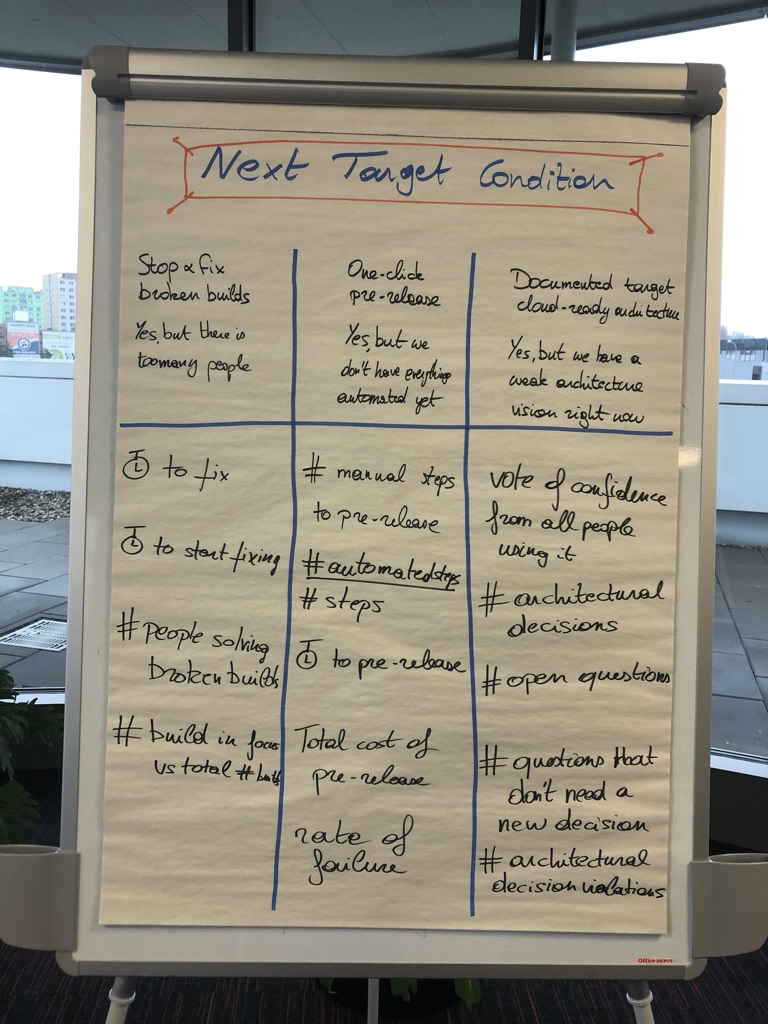 Next Target Condition
Stop & fix
broken builds
Yes, but there is
too many people
One-click
pre-release
Yes, but we
don't have everything
automated yet
Documented target
cloud-ready architecture
Yes, but we have a
weak architecture
vision right now
to fix
to start fixing
# people solving
broken builds
# build in focus
vs total # builds
# manual steps
to pre-release
# automated steps
# steps
to pre-release
Total cost of
pre-release
rate of
failure
vote of confidence
from all people
using it
# architectural
decisions
# open questions
# questions that
don't need a
new decision
# architectural
decision violations
Office DEPOT